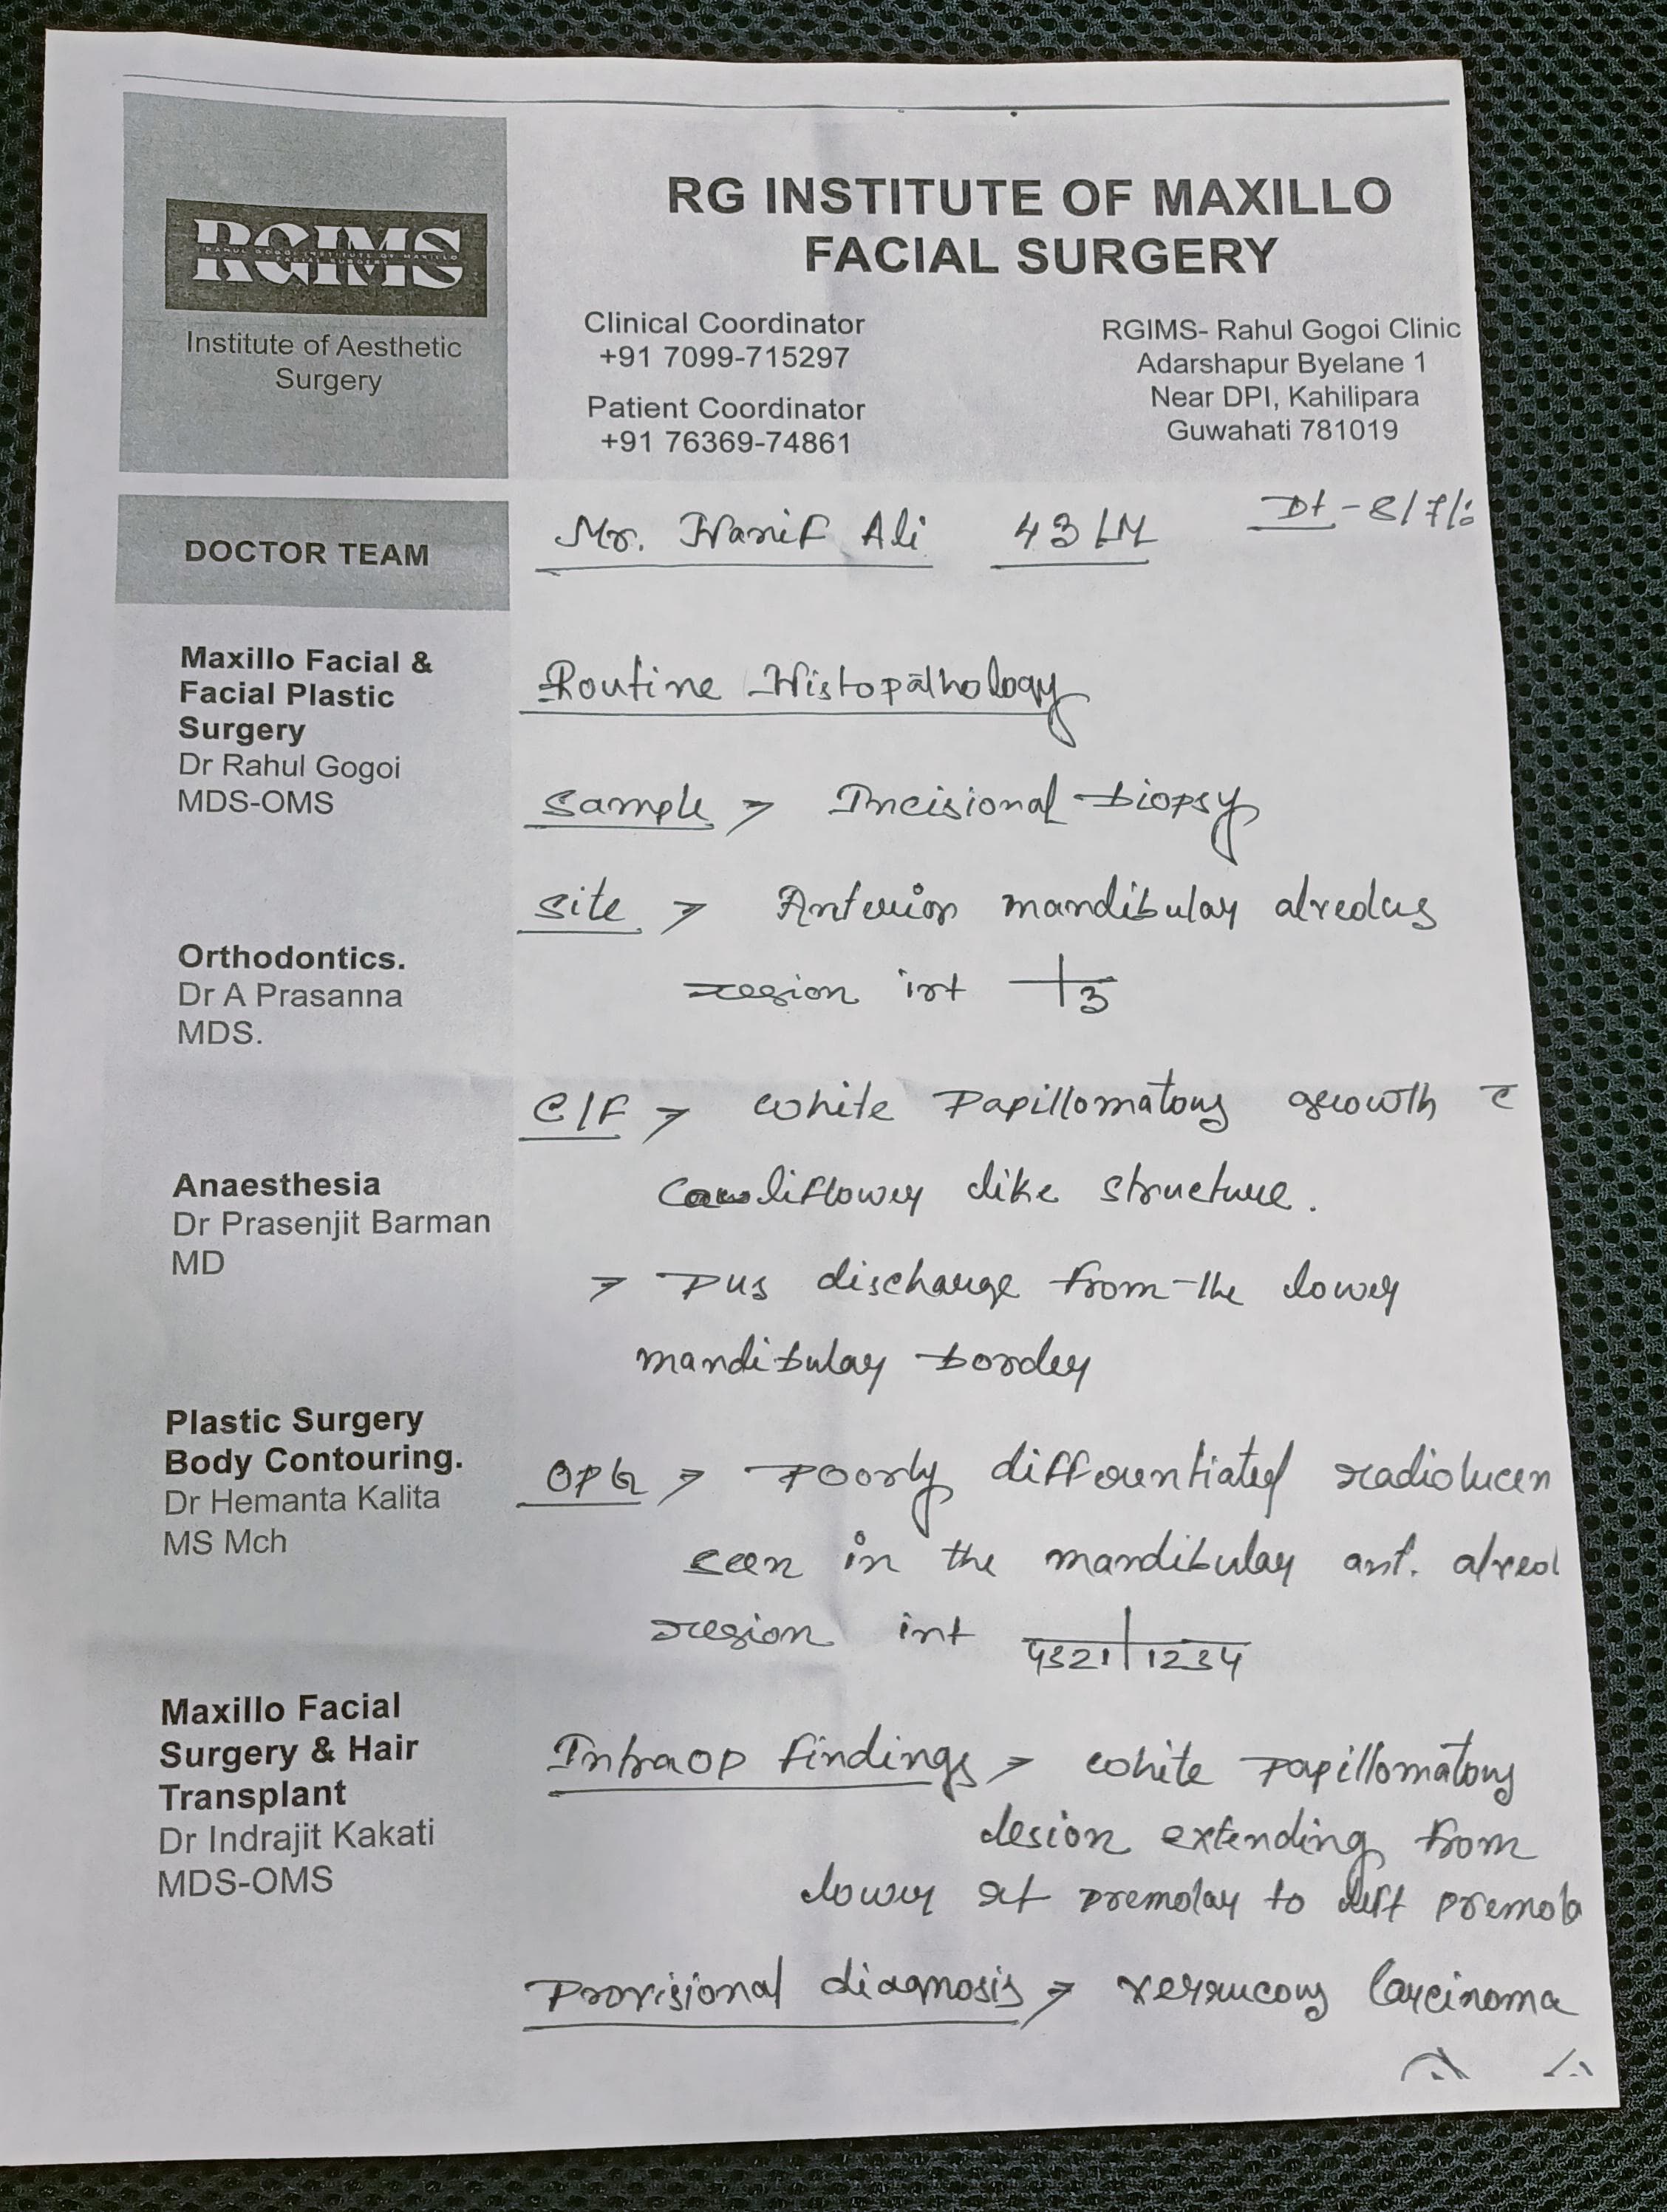 RG INSTITUTE OF MAXILLO
FACIAL SURGERY
RGIMS
Institute of Aesthetic
Surgery
Clinical Coordinator
+91 7099-715297
Patient Coordinator
+91 76369-74861
RGIMS- Rahul Gogoi Clinic
Adarshapur Byelane 1
Near DPI, Kahilipara
Guwahati 781019
DOCTOR TEAM
Maxillo Facial &
Facial Plastic
Surgery
Dr Rahul Gogoi
MDS-OMS
Orthodontics.
Dr A Prasanna
MDS.
Anaesthesia
Dr Prasenjit Barman
MD
Plastic Surgery
Body Contouring.
Dr Hemanta Kalita
MS Mch
Maxillo Facial
Surgery & Hair
Transplant
Dr Indrajit Kakati
MDS-OMS
Mr. Hanif Ali 43/M Dt - 8/7/
Routine Histopathology
Sample > Incisional biopsy
Site > Anterior mandibular alveolus
region irt 3
C/F > White Papillomatous growth c̄
Cauliflower like structure.
> Pus discharge from the lower
mandibular border
OPG > Poorly differentiated radiolucen
seen in the mandibular ant. alveol
region irt 4321|1234
Intraop findings > White Papillomatous
lesion extending from
lower rt premolar to left premola
Provisional diagnosis > Verrucous Carcinoma